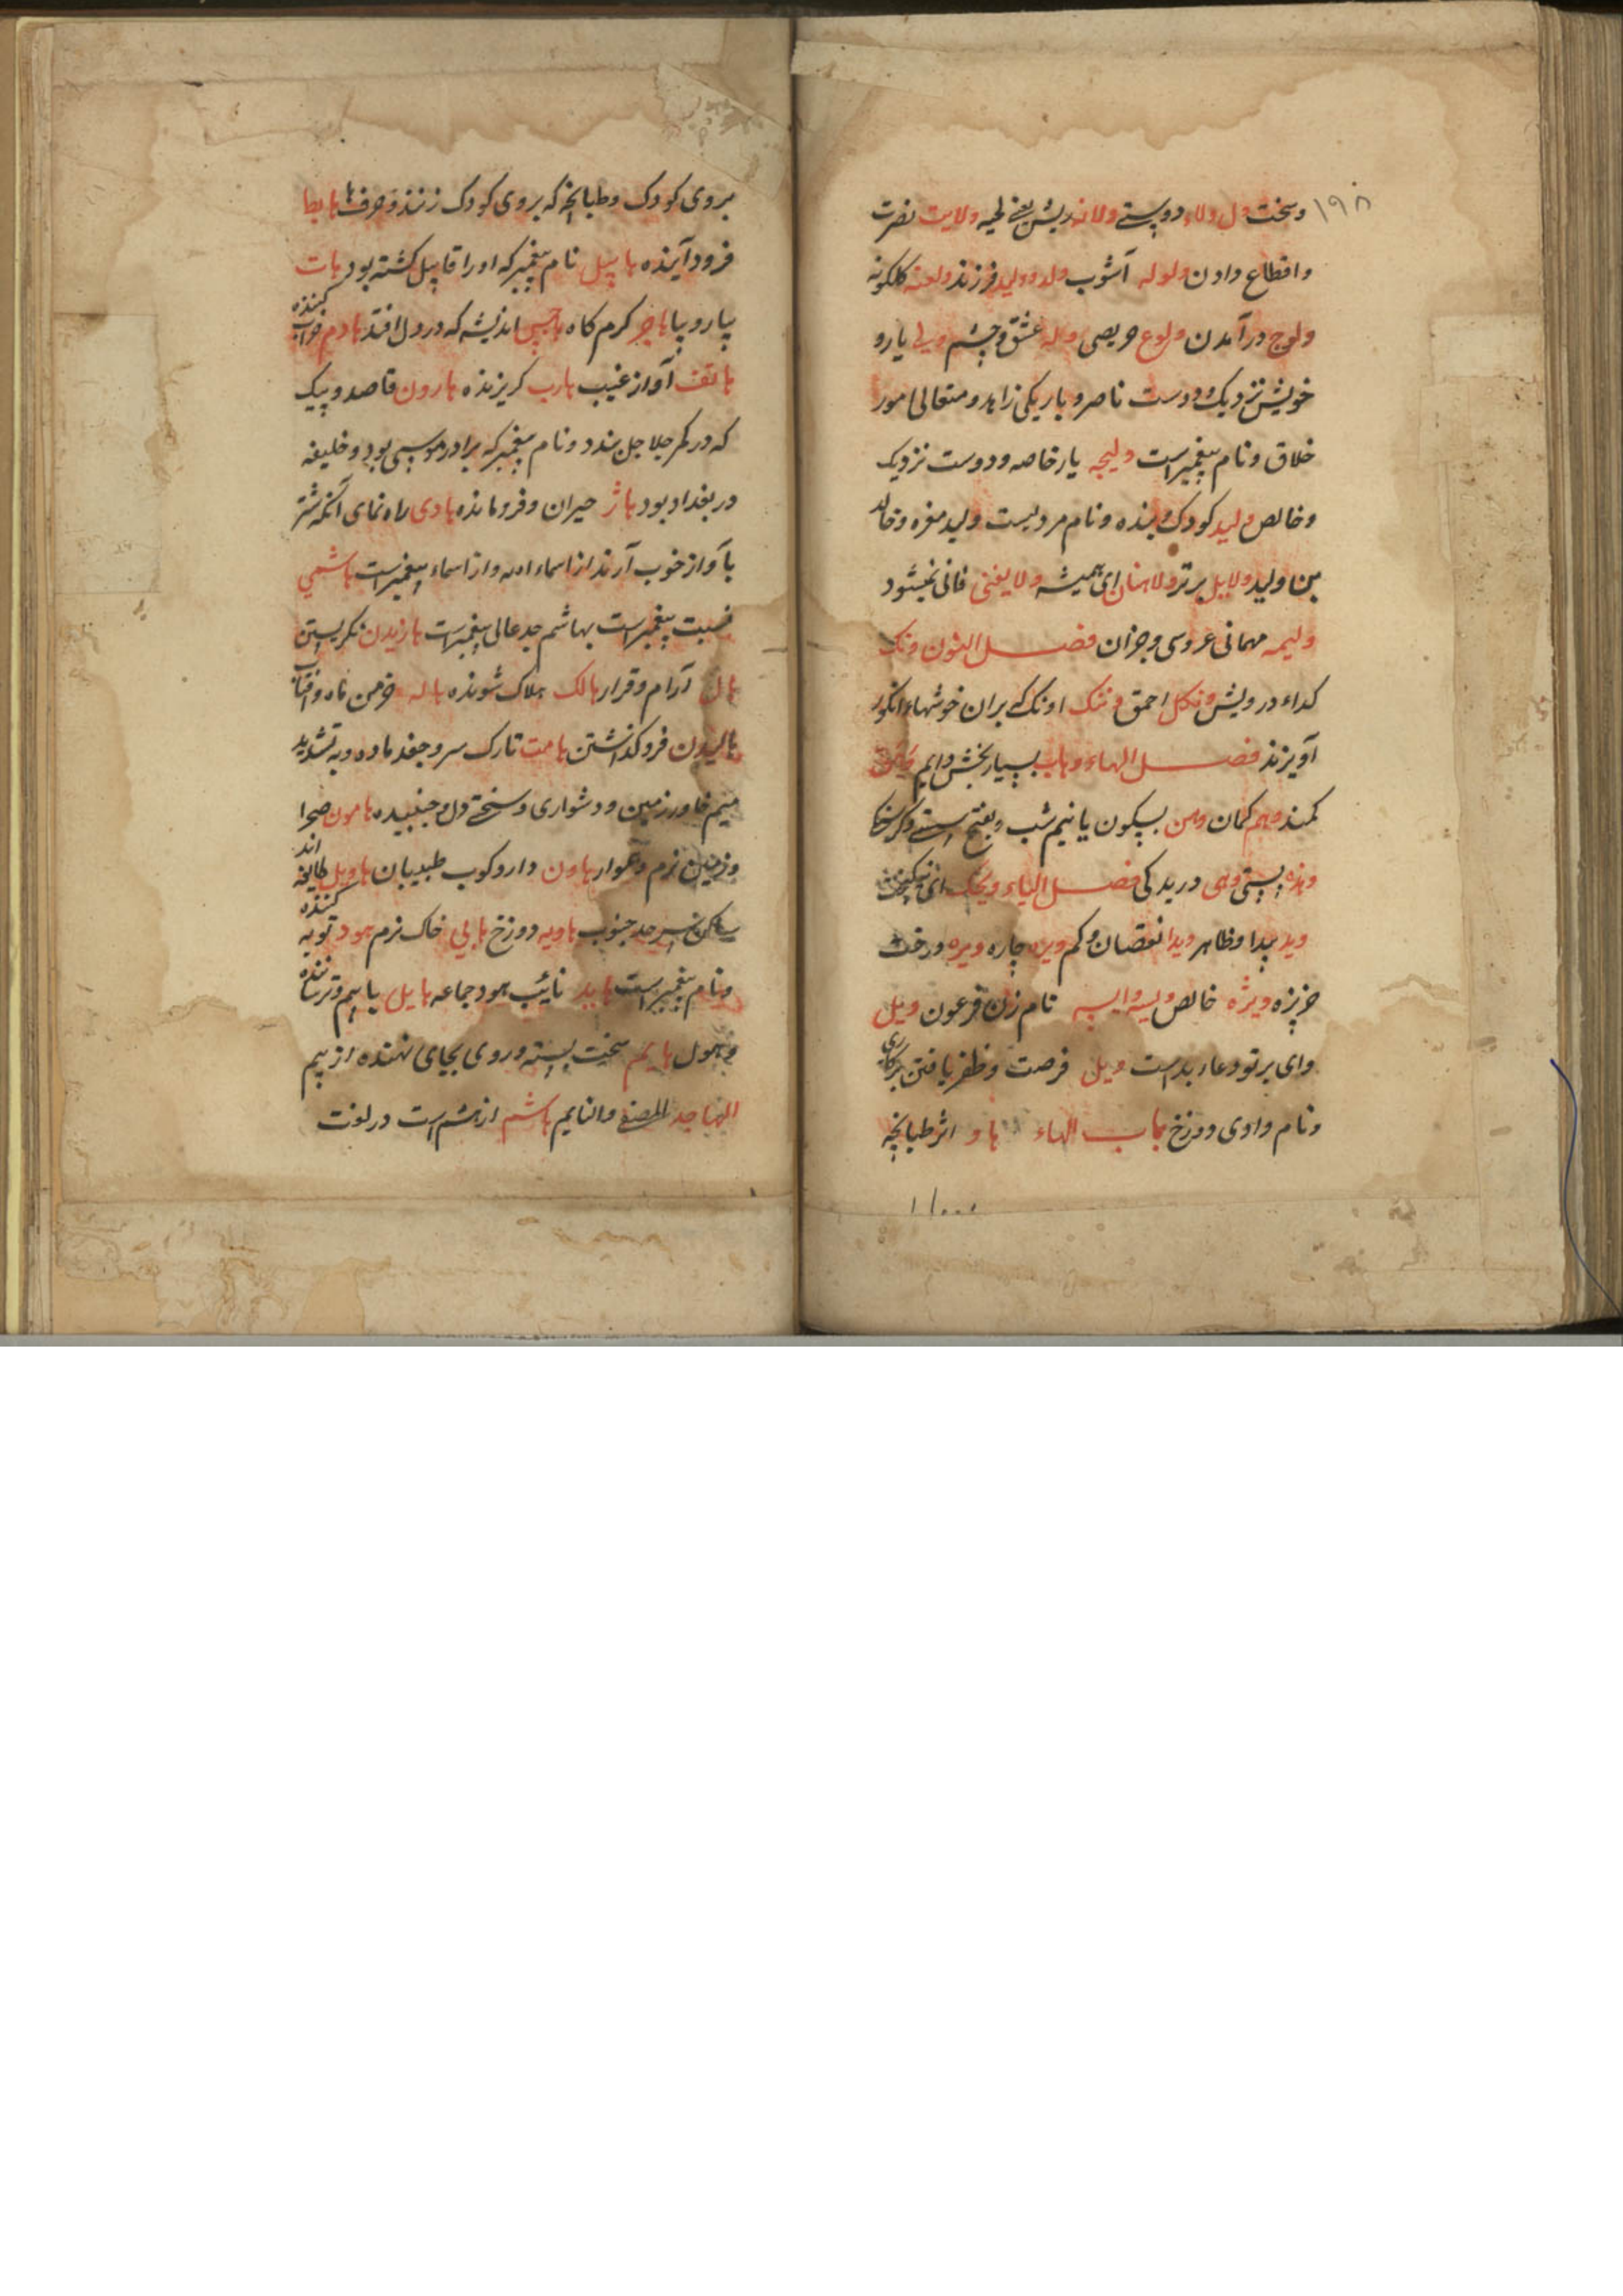 ۱۹۸
وسخت دل ولاء دوستی ولانه ریش یعنی لحیه ولایت نصرت
واقطاع دادن ولوله آشوب ولد وولید فرزند ولغنه کلکونه
ولوج درآمدن ولوع حریصی وله عشق وچشم ولی یار و
خویش نزدیک ودوست ناصر و باریکی زاهد ومتعالی امور
خلاق ونام پیغمبر است ولیجه یار خاصه ودوست نزدیک
وخالص ولید کودک بنده ونام مردیست ولید مغره وخالد
بن اولید ولایل برتر ولاهنان ای همیشه ولا یغنی فانی نمیشود
ولیمه مهمانی عروسی وجزان فصل النون ونک
کداء درویش ونکل احمق وننک اونک که بران خوشهاء انگور
آویزند فصل الهاء وهاب بسیار بخش دایم وهق
کمند وهم کمان وهن بسکون یا نیم شب وبفتح سستی
وهذه پستی وهی دریدکی فصل الیاء ویحک ای
وید پیدا وظاهر ویدا نقصان وکم ویره چاره ویره درخت
خربزه ویژه خالص ویسه وایسه نام زن فرعون ویل
وای برتو دعاء بد است ویل فرصت وظفر یافتن برکاری
ونام وادی دوزخ باب الهاء هاو اثر طبانچه
۱۱۰۰۰
بروی کودک وطبانچه که بروی کودک زنند وحرف ها هابط
فرود آینده هابیل نام پیغمبر که اورا قابیل کشته بود هات
بیار وبیا هاجر کرم کاه هاجس اندیشه که در دل افتد هادم خراب کننده
هاتف آواز غیب هارب کریزنده هارون قاصد وپیک
که در کمر جلاجل بندد ونام پیغمبر که برادر موسی بود وخلیفه
در بغداد بود هاژ حیران وفرومانده هادی راه نمای آنکه شتر
بآواز خوب آرند از اسماء الله واز اسماء پیغمبر است هاشمی
نسبت پیغمبر است بهاشم جد عالی پیغمبر است هازیدن نکریستن
هال آرام وقرار هالک هلاک شونده هاله خرمن ماه وافتاب
هالیدن فروگذاشتن هامت تارک سر وجغد ماده وبه تشدید
میم خاور زمین ودشواری وسختی دل وجنبیده هامون صحرا
وزمین نرم وهموار هاون داروکوب طبیبان هاویل طایفه اند
ساکن سرحد جنوب هاویه دوزخ هابی خاک نرم هود توبه کننده
ونام پیغمبر است هاید تائب هود جماعه هایل با بیم وترساننده
وهول هایم سخت بسته وروی بجای نهنده از بیم
الهاجد المصلی والنایم هاشم از هشم است در لغت